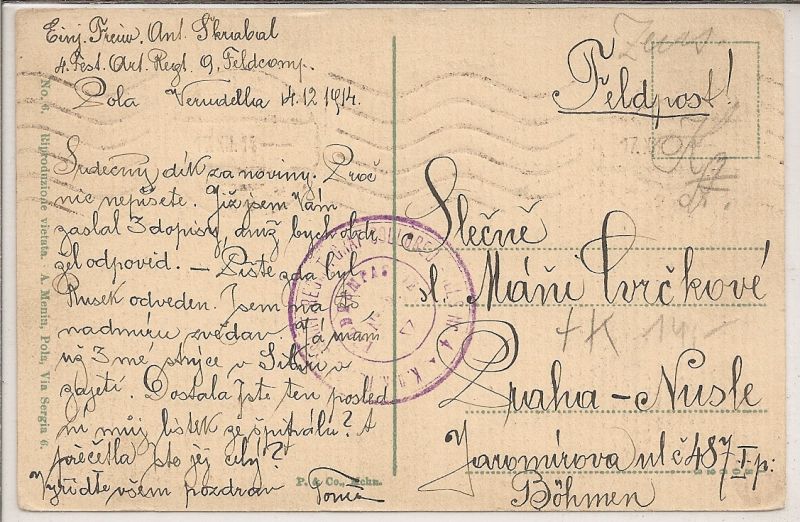 Einj. Freiw. Ant. Skrabal
4. Fest. Art. Regt. 9. Feldcomp.
Pola Verudella 14.12 1914.
Srdečný dík za noviny. Proč
nic nepíšete. Již jsem Vám
zaslal 3 dopisy, aniž bych obdr
žel odpověd. – Pište zda byl
Rusek odveden. Jsem na
nadmíru zvědav. Já mám
už 3 mé strýce v Sibiři v
zajetí. Dostala jste ten posled
ní můj lístek ze špitálu? A
přečetla jste jej celý?
Vyřiďte všem pozdrav
Feldpost!
Slečně
sl. Máňi Cvrčkové
Praha – Nusle
Jaromírova ul č 487 I p:
Böhmen
+K 14,-
No. 6. Riproduzione vietata. A. Menin, Pola, Via Sergia 6.
P. & Co., Mchn.